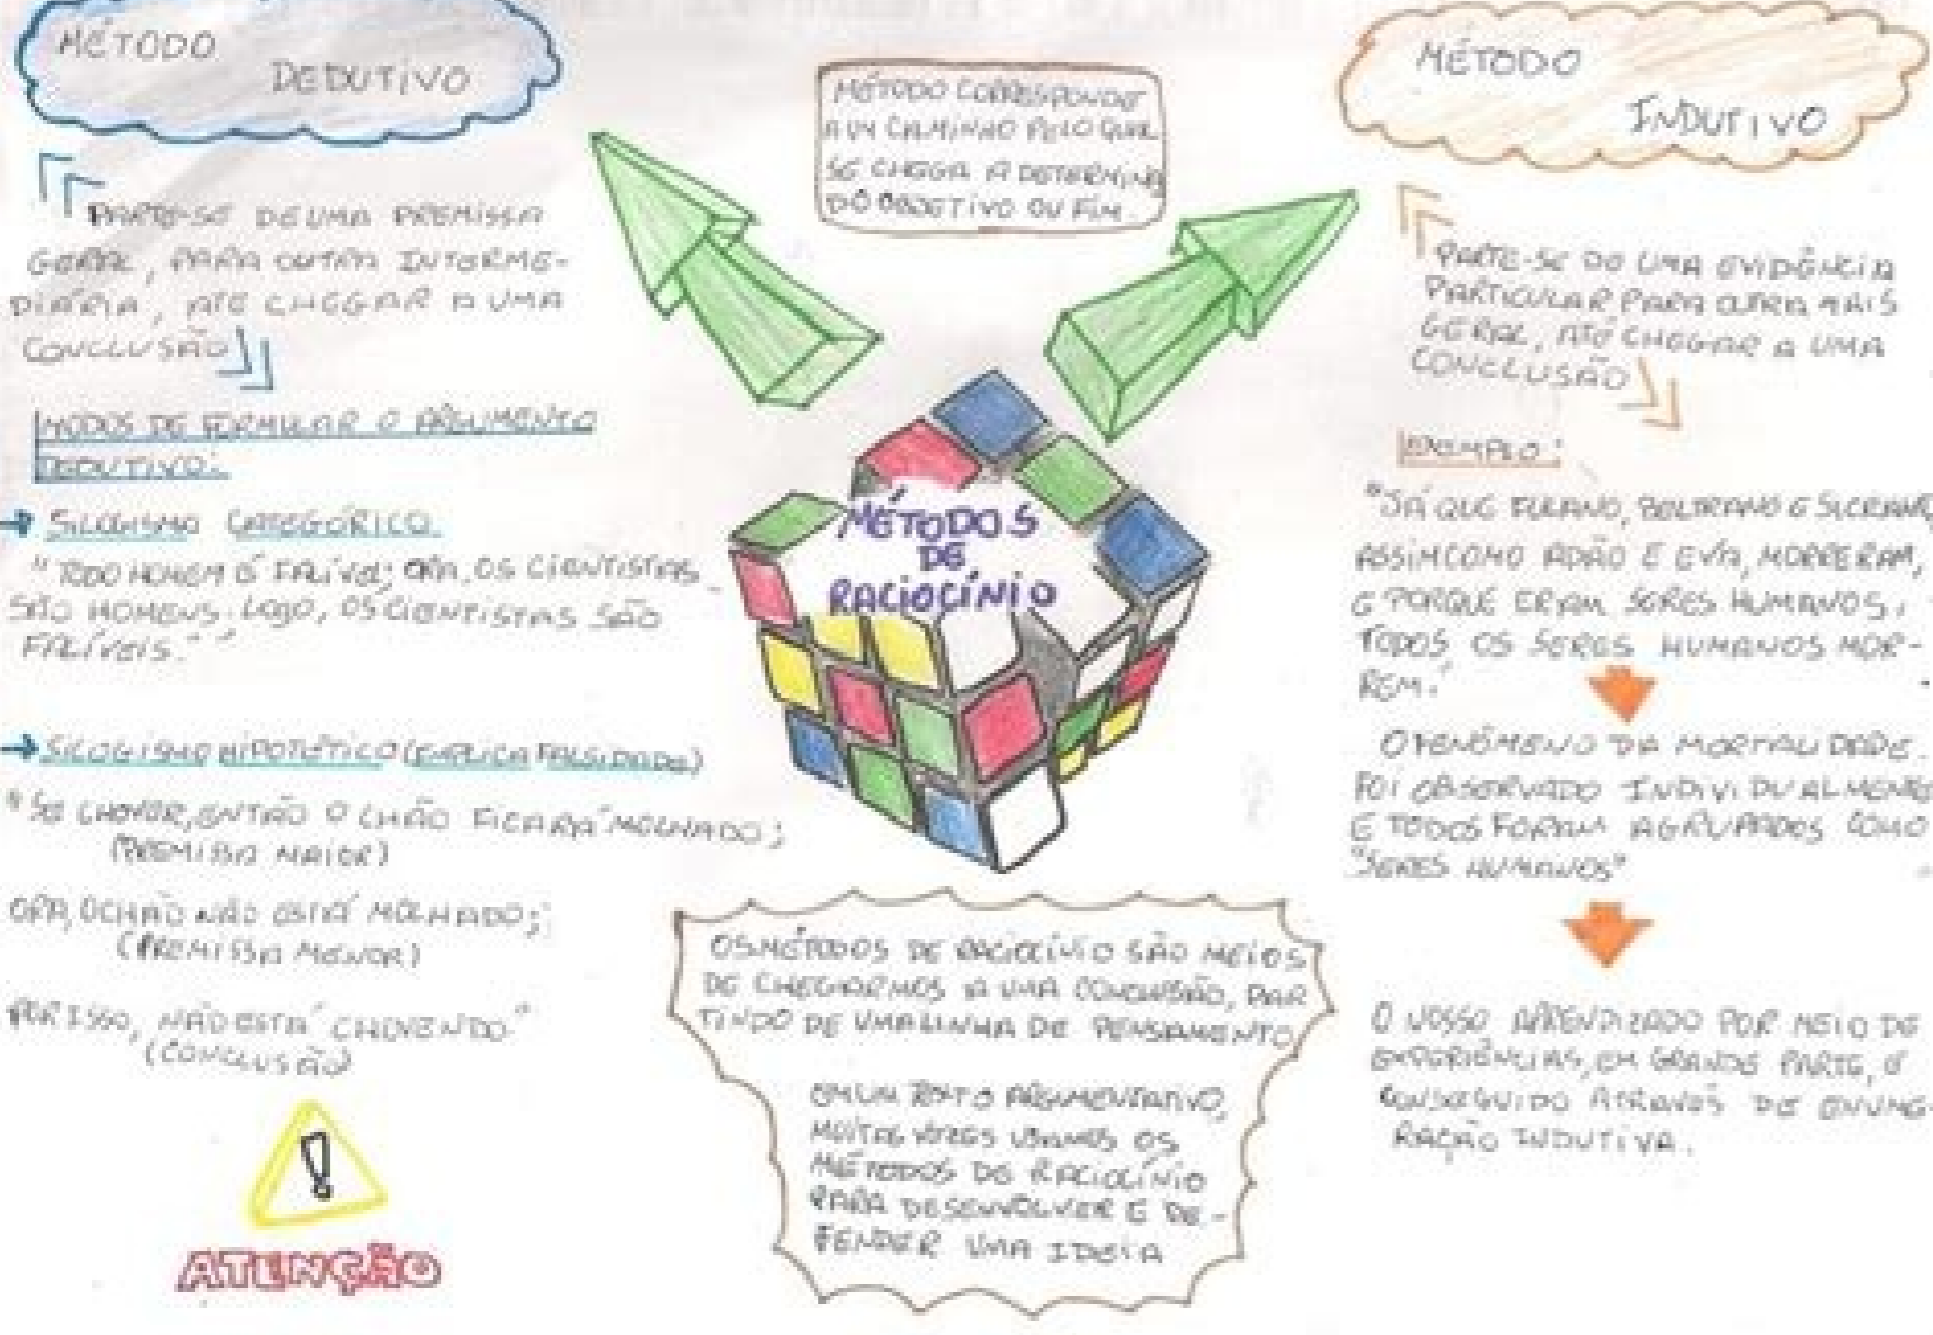 MÉTODO
DEDUTIVO
PARTE-SE DE UMA PREMISSA
GERAL, PARA OUTRA INTERME-
DIÁRIA, ATÉ CHEGAR A UMA
CONCLUSÃO
MODOS DE FORMULAR O ARGUMENTO
DEDUTIVO:
SILOGISMO CATEGÓRICO
"TODO HOMEM É FALÍVEL; ORA, OS CIENTISTAS
SÃO HOMENS. LOGO, OS CIENTISTAS SÃO
FALÍVEIS."
SILOGISMO HIPOTÉTICO (EXPLICA FALSIDADE)
"SE CHOVER, ENTÃO O CHÃO FICARÁ MOLHADO;
(PREMISSA MAIOR)
ORA, O CHÃO NÃO ESTÁ MOLHADO;
(PREMISSA MENOR)
POR ISSO, NÃO ESTÁ CHOVENDO."
(CONCLUSÃO)
!
ATENÇÃO
MÉTODO CORRESPONDE
A UM CAMINHO PELO QUAL
SE CHEGA A DETERMINA
DO OBJETIVO OU FIM.
MÉTODOS
DE
RACIOCÍNIO
OS MÉTODOS DE RACIOCÍNIO SÃO MEIOS
DE CHEGARMOS A UMA CONCLUSÃO, PAR
TINDO DE UMA LINHA DE PENSAMENTO
EM UM TEXTO ARGUMENTATIVO,
MUITAS VEZES USAMOS OS
MÉTODOS DE RACIOCÍNIO
PARA DESENVOLVER E DE-
FENDER UMA IDEIA
MÉTODO
INDUTIVO
PARTE-SE DE UMA EVIDÊNCIA
PARTICULAR PARA OUTRA MAIS
GERAL, ATÉ CHEGAR A UMA
CONCLUSÃO
EXEMPLO:
"JÁ QUE FULANO, BELTRANO E SICRANO,
ASSIM COMO ADÃO E EVA, MORRERAM,
E PORQUE ERAM SERES HUMANOS,
TODOS OS SERES HUMANOS MOR-
REM."
O FENÔMENO DA MORTALIDADE
FOI OBSERVADO INDIVIDUALMENTE
E TODOS FORAM AGRUPADOS COMO
"SERES HUMANOS"
O NOSSO APRENDIZADO POR MEIO DE
EXPERIÊNCIAS, EM GRANDE PARTE, É
CONSEGUIDO ATRAVÉS DE ENUME-
RAÇÃO INDUTIVA.